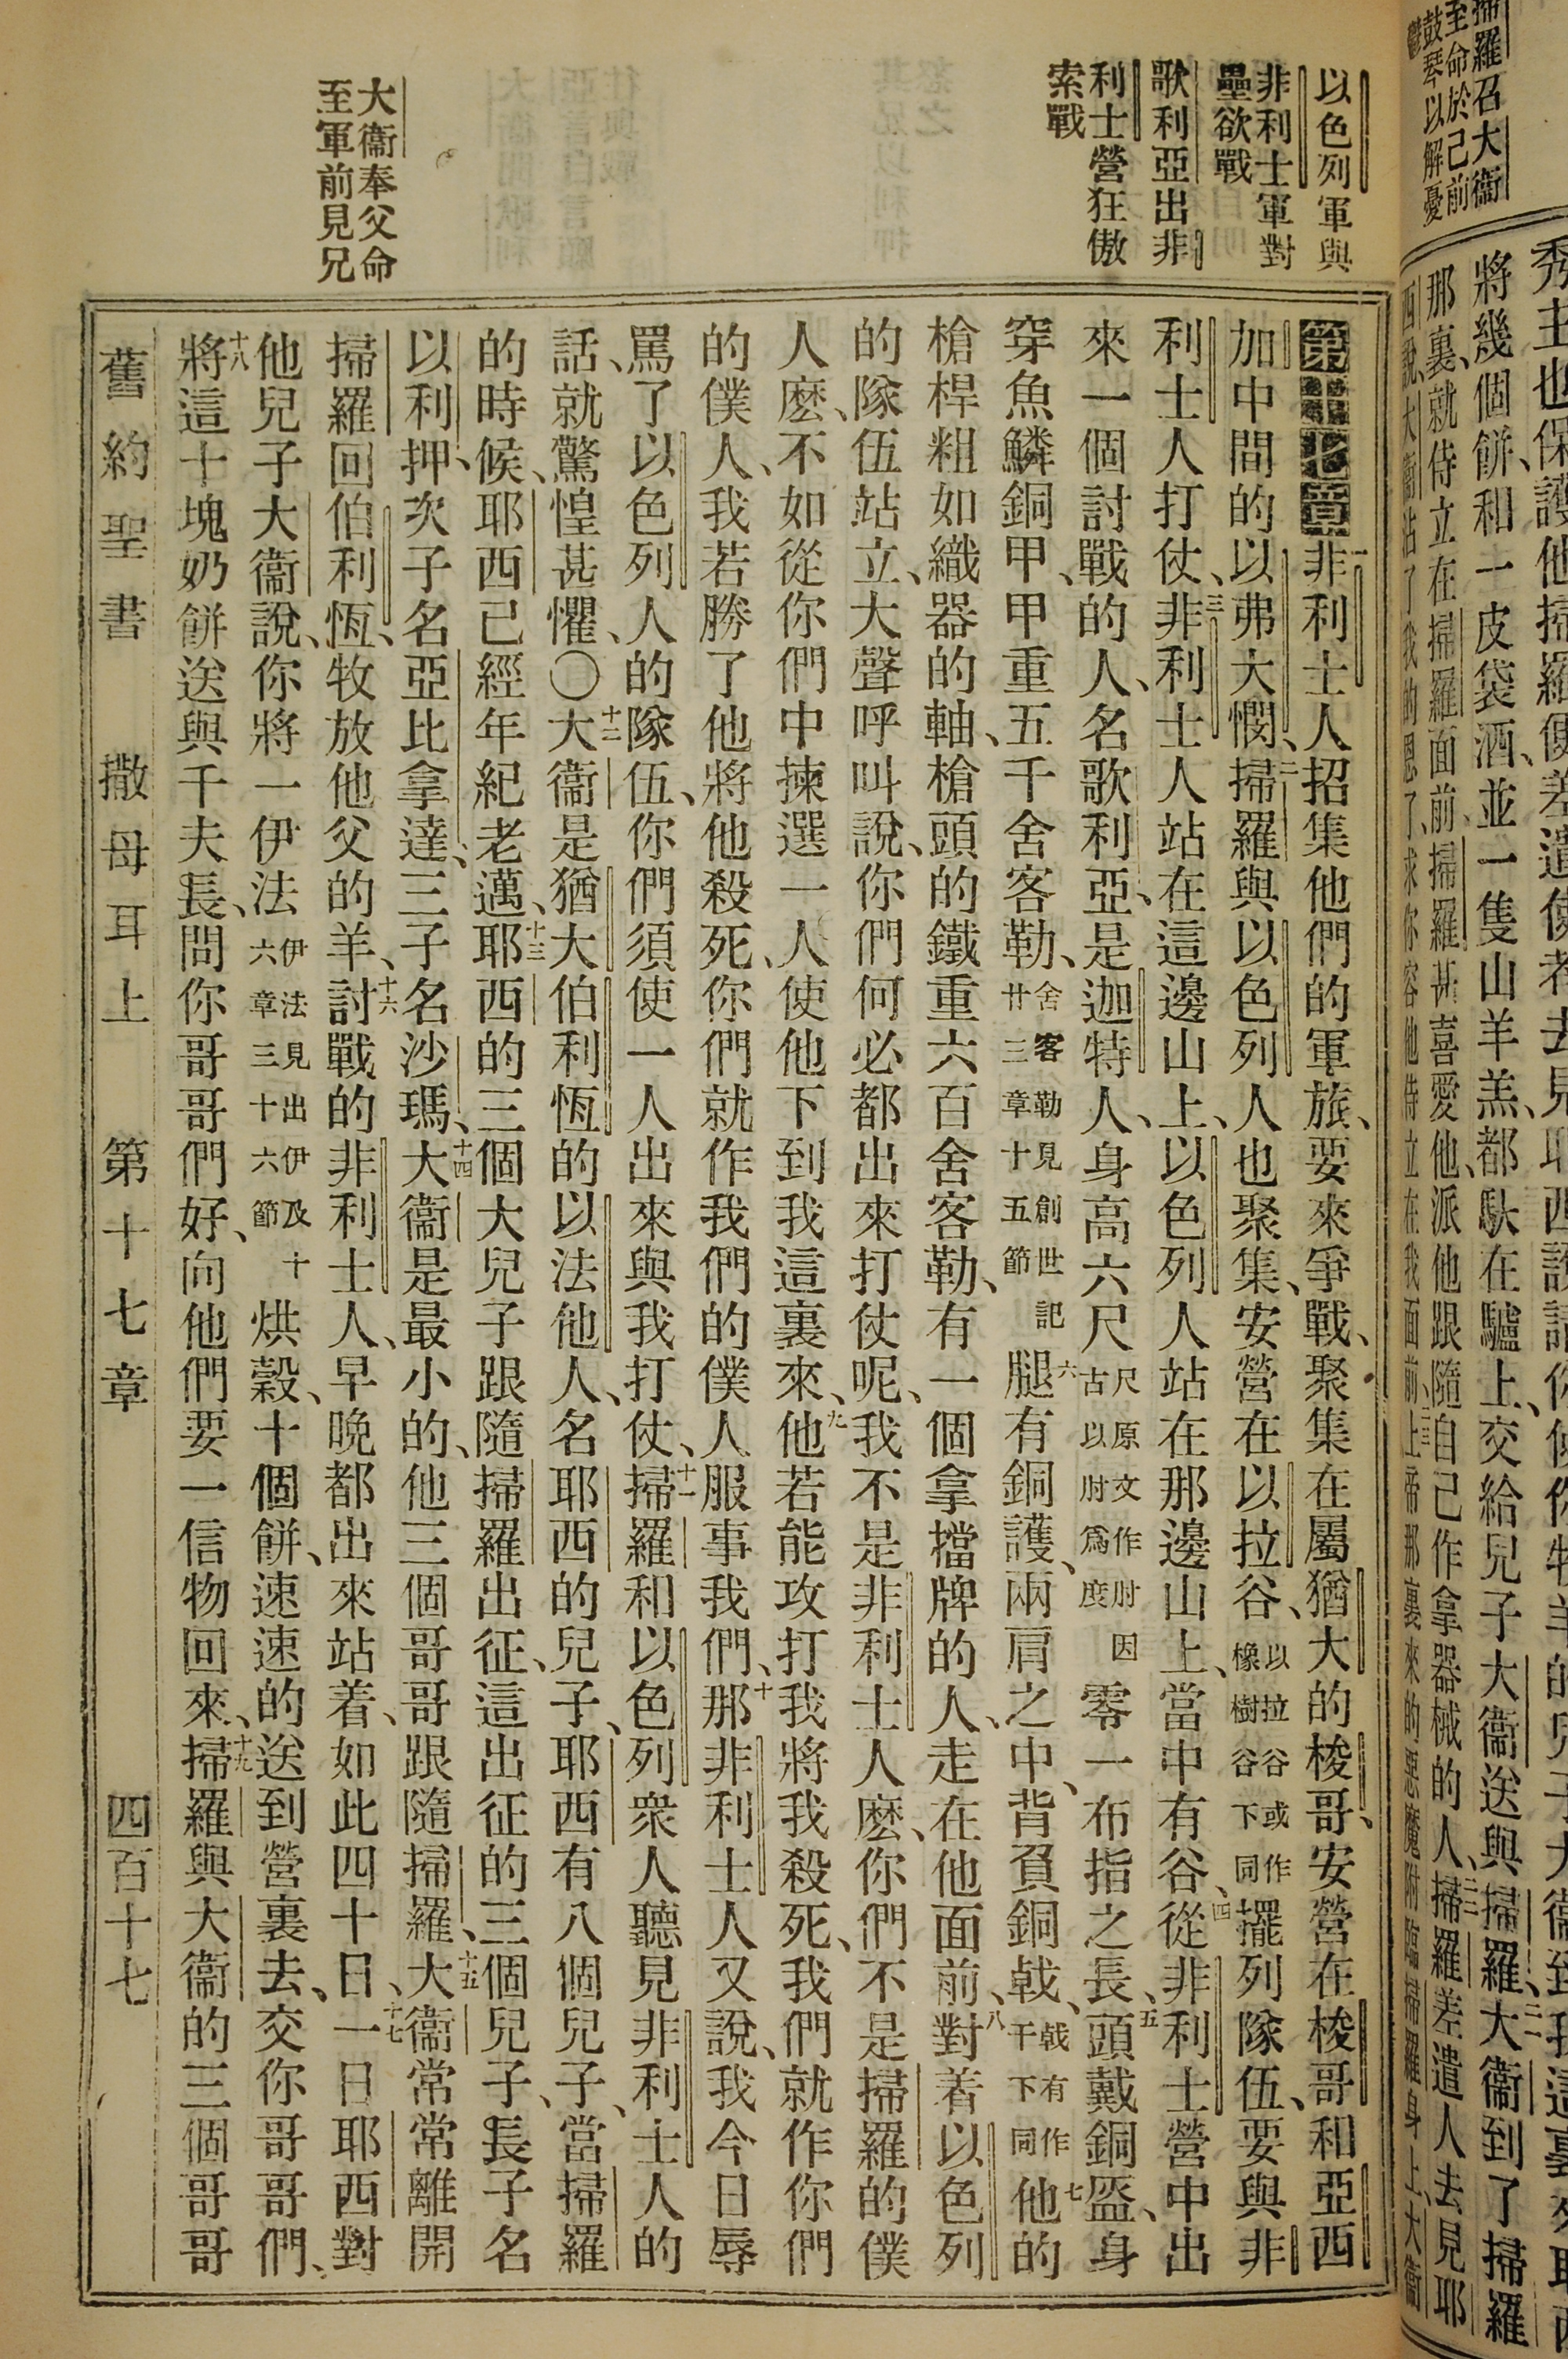 掃羅召大衞
至命於己前
鼓琴以解憂
將幾個餅、和一皮袋酒、並一隻山羊羔、都馱在驢上、交給兒子大衞送與掃羅、二一大衞到了掃羅
那裏、就侍立在掃羅面前、掃羅甚喜愛他、派他跟隨自己作拿器械的人、二二掃羅差遣人去見耶
西說、大衞沾了我的恩了、求你容他侍立在我面前、二三上帝那裏來的惡魔附臨掃羅身上、大衞
以色列軍與
非利士軍對
壘欲戰
歌利亞出非
利士營狂傲
索戰
大衞奉父命
至軍前見兄
第十七章一非利士人招集他們的軍旅、要來爭戰、聚集在屬猶大的梭哥、安營在梭哥和亞西
加中間的以弗大憫、二掃羅與以色列人也聚集、安營在以拉谷、以拉谷或作橡樹谷下同擺列隊伍、要與非
利士人打仗、三非利士人站在這邊山上、以色列人站在那邊山上、當中有谷、四從非利士營中出
來一個討戰的人、名歌利亞、是迦特人、身高六尺尺原文作肘因古以肘爲度零一布指之長、五頭戴銅盔、身
穿魚鱗銅甲、甲重五千舍客勒、舍客勒見創世記廿三章十五節六腿有銅護、兩肩之中、背負銅戟、戟有作干下同七他的
槍桿粗如織器的軸、槍頭的鐵重六百舍客勒、有一個拿擋牌的人、走在他面前、八對着以色列
的隊伍站立、大聲呼叫說、你們何必都出來打仗呢、我不是非利士人麽、你們不是掃羅的僕
人麽、不如從你們中揀選一人、使他下到我這裏來、九他若能攻打我將我殺死、我們就作你們
的僕人、我若勝了他將他殺死、你們就作我們的僕人服事我們、十那非利士人又說、我今日辱
罵了以色列人的隊伍、你們須使一人出來與我打仗、十一掃羅和以色列衆人聽見非利士人的
話、就驚惶甚懼、〇十二大衞是猶大伯利恆的以法他人、名耶西的兒子、耶西有八個兒子、當掃羅
的時候、耶西已經年紀老邁、十三耶西的三個大兒子跟隨掃羅出征、這出征的三個兒子、長子名
以利押、次子名亞比拿達、三子名沙瑪、十四大衞是最小的、他三個哥哥跟隨掃羅、十五大衞常常離開
掃羅回伯利恆、牧放他父的羊、十六討戰的非利士人、早晚都出來站着、如此四十日、十七一日耶西對
他兒子大衞說、你將一伊法伊法見出伊及十六章三十六節烘穀、十個餅、速速的送到營裏去、交你哥哥們、
十八將這十塊奶餅送與千夫長、問你哥哥們好、向他們要一信物回來、十九掃羅與大衞的三個哥哥
舊約聖書 撒母耳上 第十七章 四百十七